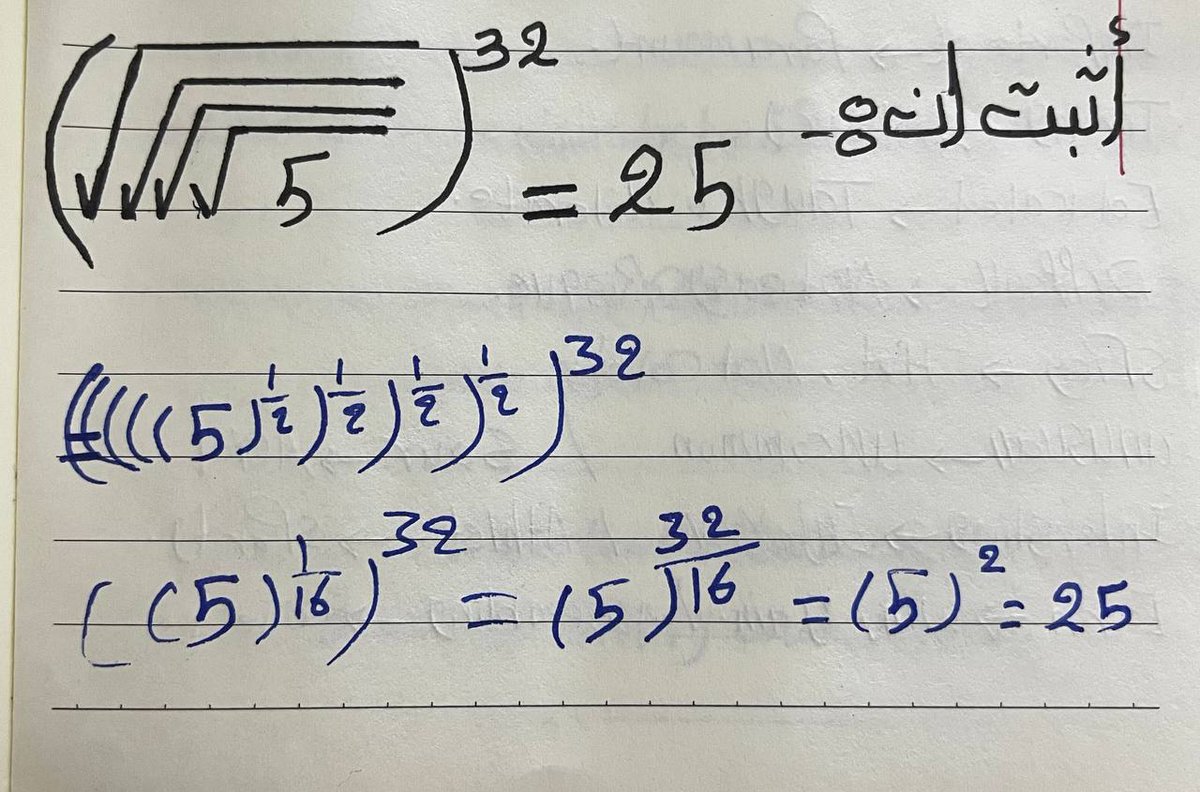 أثبت أن :-
(√√√√5)^32 = 25
(((((5)^1/2)^1/2)^1/2)^1/2)^32
((5)^1/16)^32 = (5)^32/16 = (5)^2 = 25